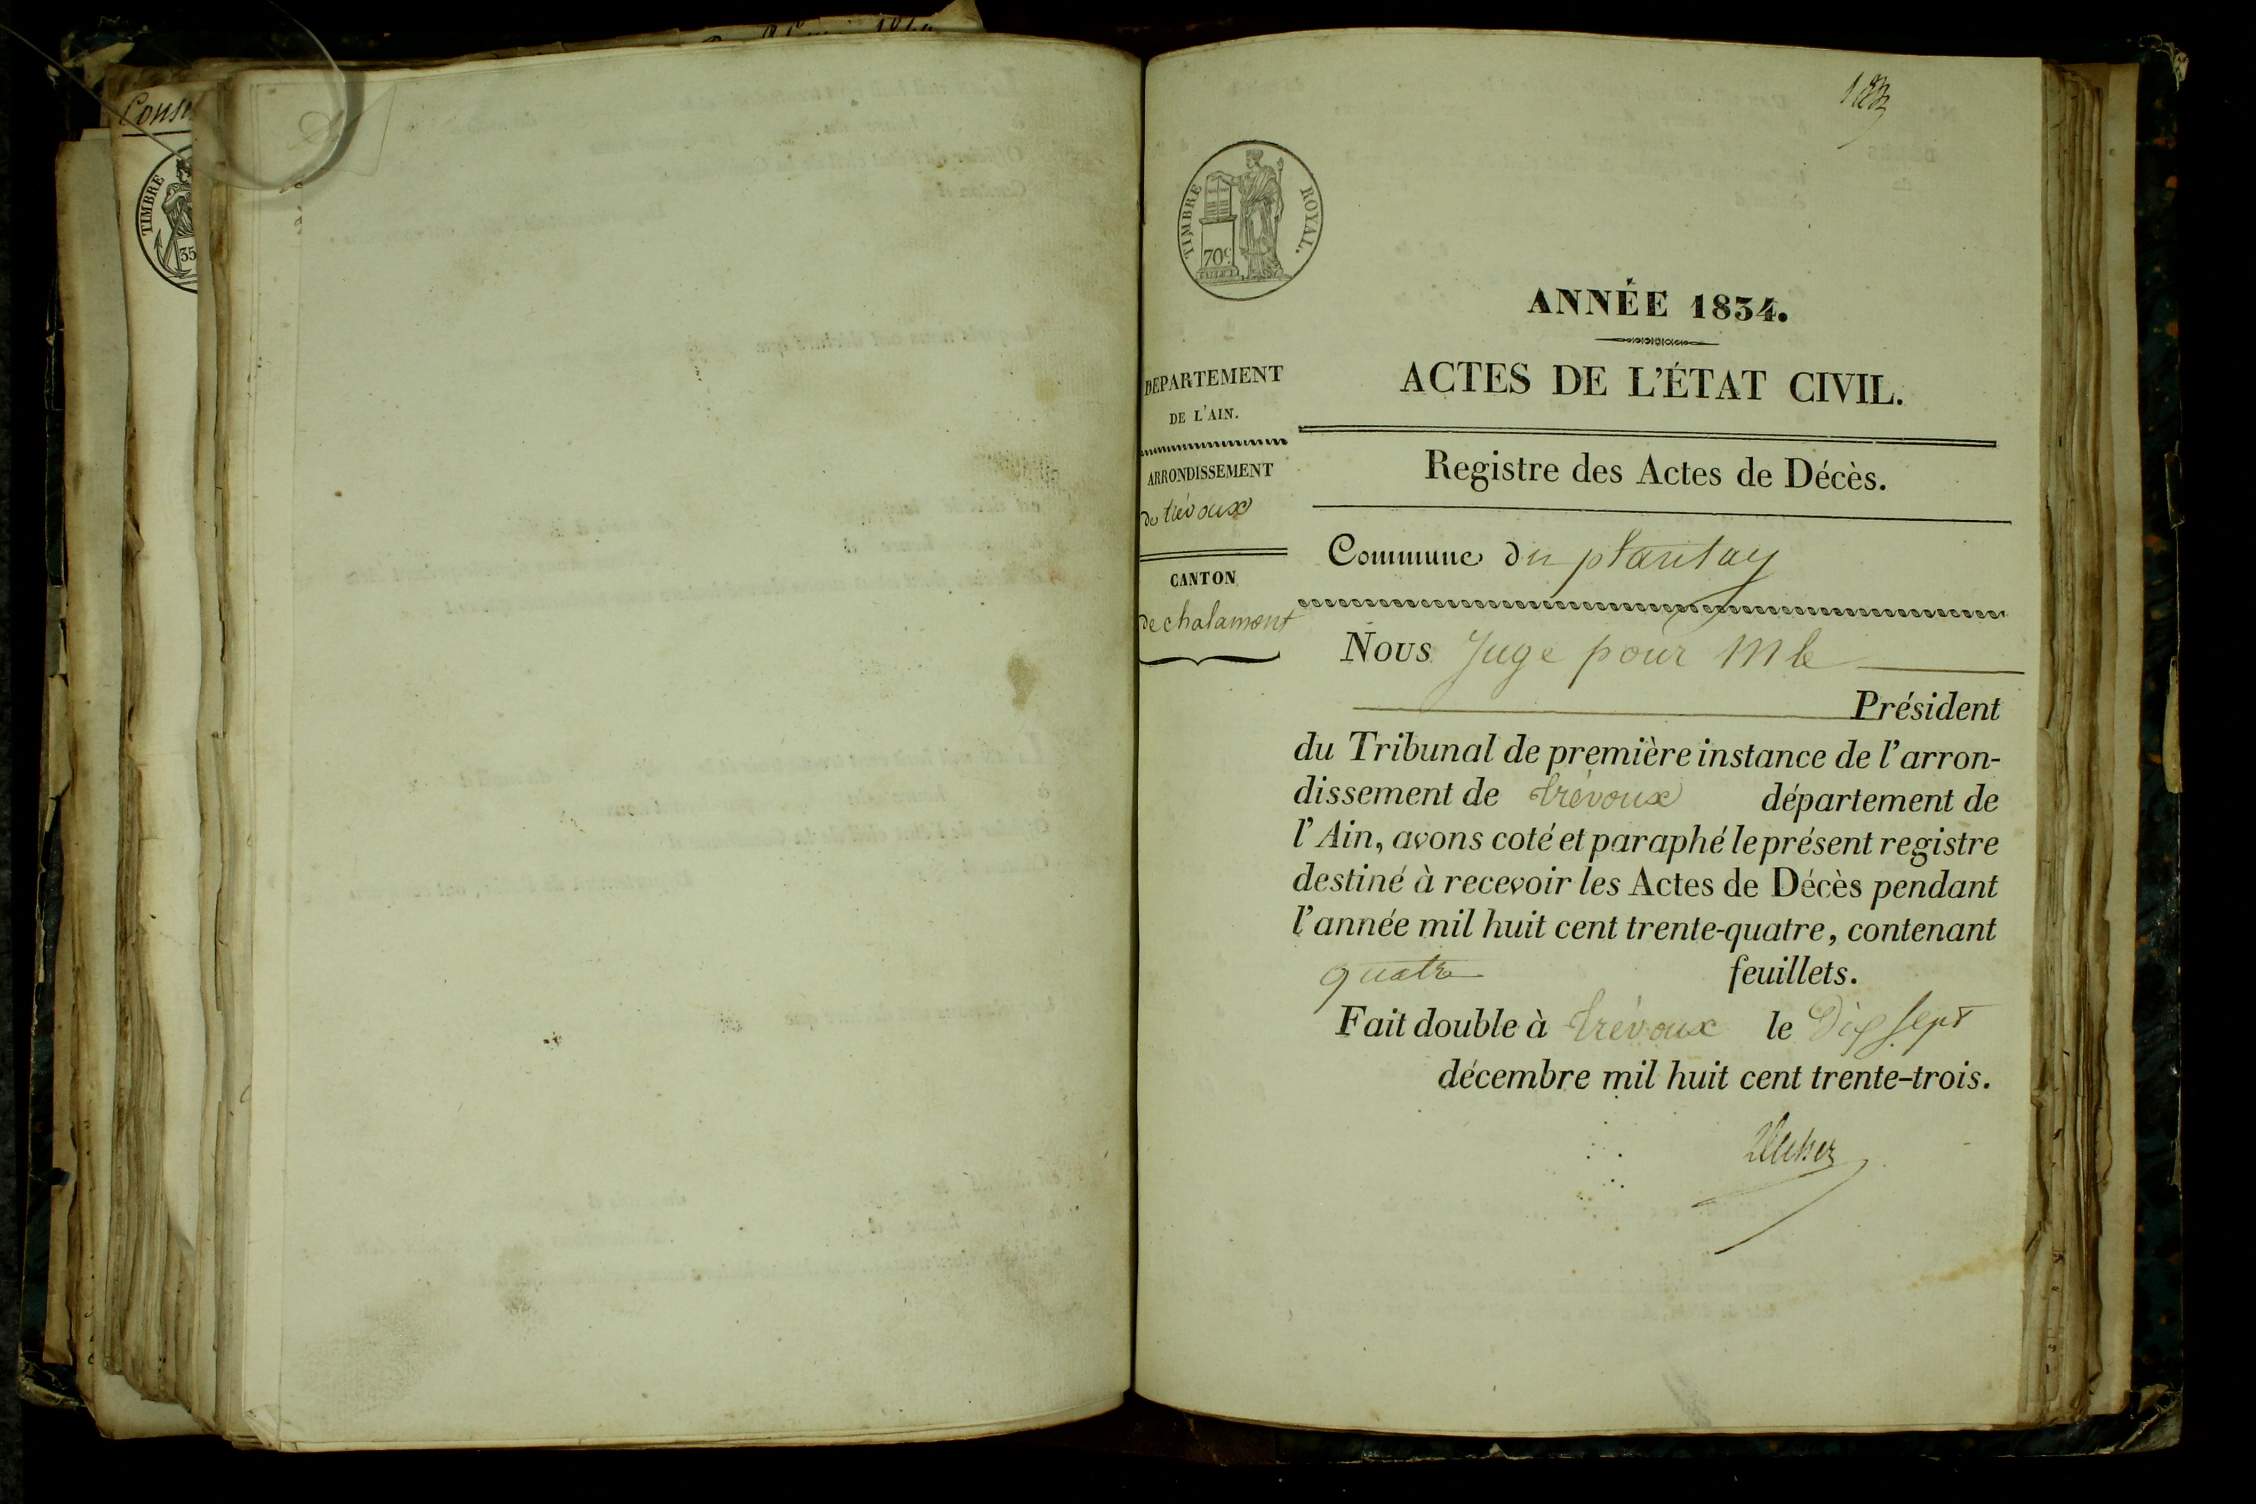 Conse
TIMBRE
35
TIMBRE ROYAL.
70c
ANNÉE 1834.
ACTES DE L'ÉTAT CIVIL.
DEPARTEMENT
DE L'AIN.
ARRONDISSEMENT
de trévoux
CANTON
de chalamont
Registre des Actes de Décès.
Commune du plantay
Nous Juge pour M le
Président
du Tribunal de première instance de l'arron-
dissement de trévoux département de
l'Ain, avons coté et paraphé le présent registre
destiné à recevoir les Actes de Décès pendant
l'année mil huit cent trente-quatre, contenant
quatre feuillets.
Fait double à trévoux le Dix sept
décembre mil huit cent trente-trois.